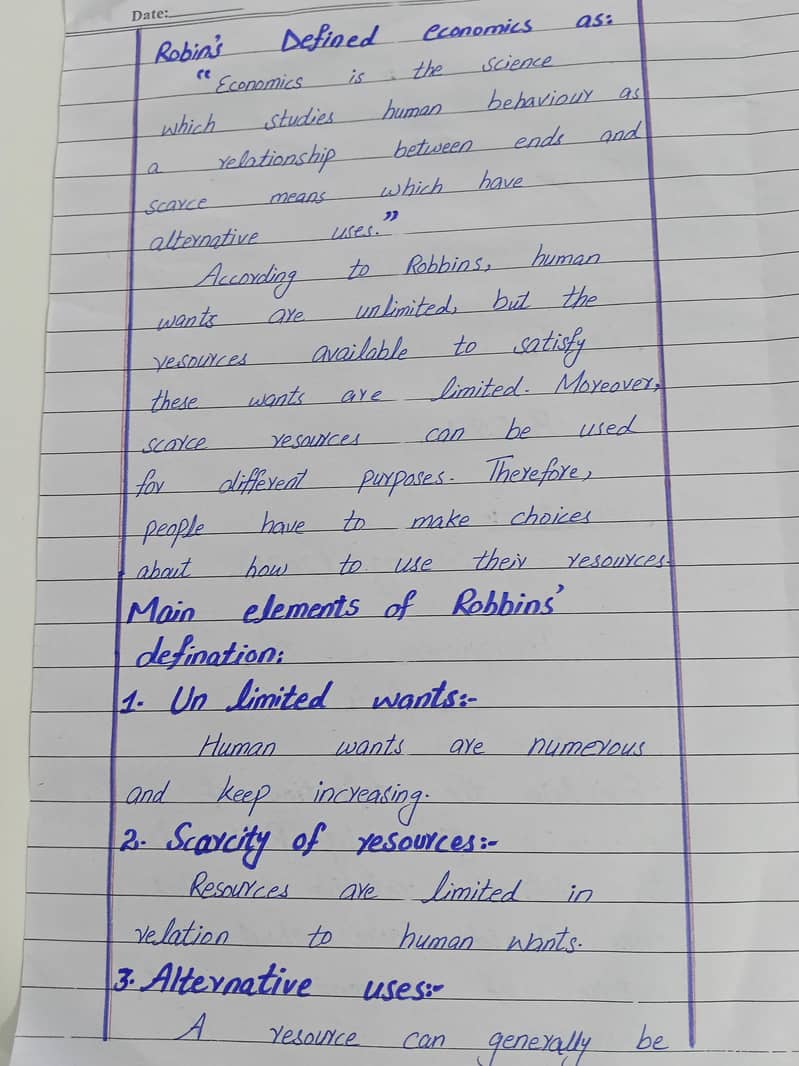 Date:
Robin's Defined economics as:
"Economics is the science
which studies human behaviour as
a relationship between ends and
scarce means which have
alternative uses."
According to Robbins, human
wants are unlimited, but the
resources available to satisfy
these wants are limited. Moreover,
scarce resources can be used
for different purposes. Therefore,
people have to make choices
about how to use their resources.
Main elements of Robbins'
defination:
1. Un limited wants:-
Human wants are numerous
and keep increasing.
2. Scarcity of resources:-
Resources are limited in
relation to human wants.
3. Alternative uses:-
A resource can generally be